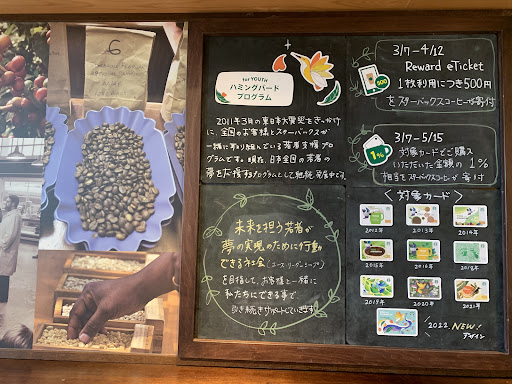 6
for YOUTH
ハミングバード
プログラム
2011年3月の東日本大震災をきっかけ
に、全国のお客様とスターバックスが
一緒に取り組んでいる若者支援プロ
グラムです。現在、日本全国の若者の
夢を応援するプログラムとして継続・発展中です。
未来を担う若者が
夢の実現のために行動
できる社会(ユースリーダーシップ)
を目指して、お客様と一緒に
私たちにできる事で
引き続きサポートしていきます
3/7-4/12
Reward eTicket
1枚利用につき500円
をスターバックスコーヒーが寄付
500
3/7-5/15
対象カードをご購入
いただいた金額の1%
相当をスターバックスコーヒーが寄付
1%
〈対象カード〉
2012年
2013年
2014年
2015年
2016年
2018年
2019年
2020年
2021年
2022 NEW!
デザイン